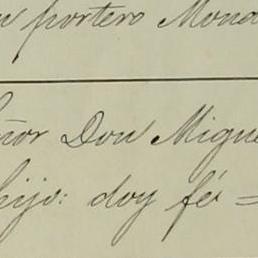 portero Mona
ñor Don Migue
hijo: doy fé =